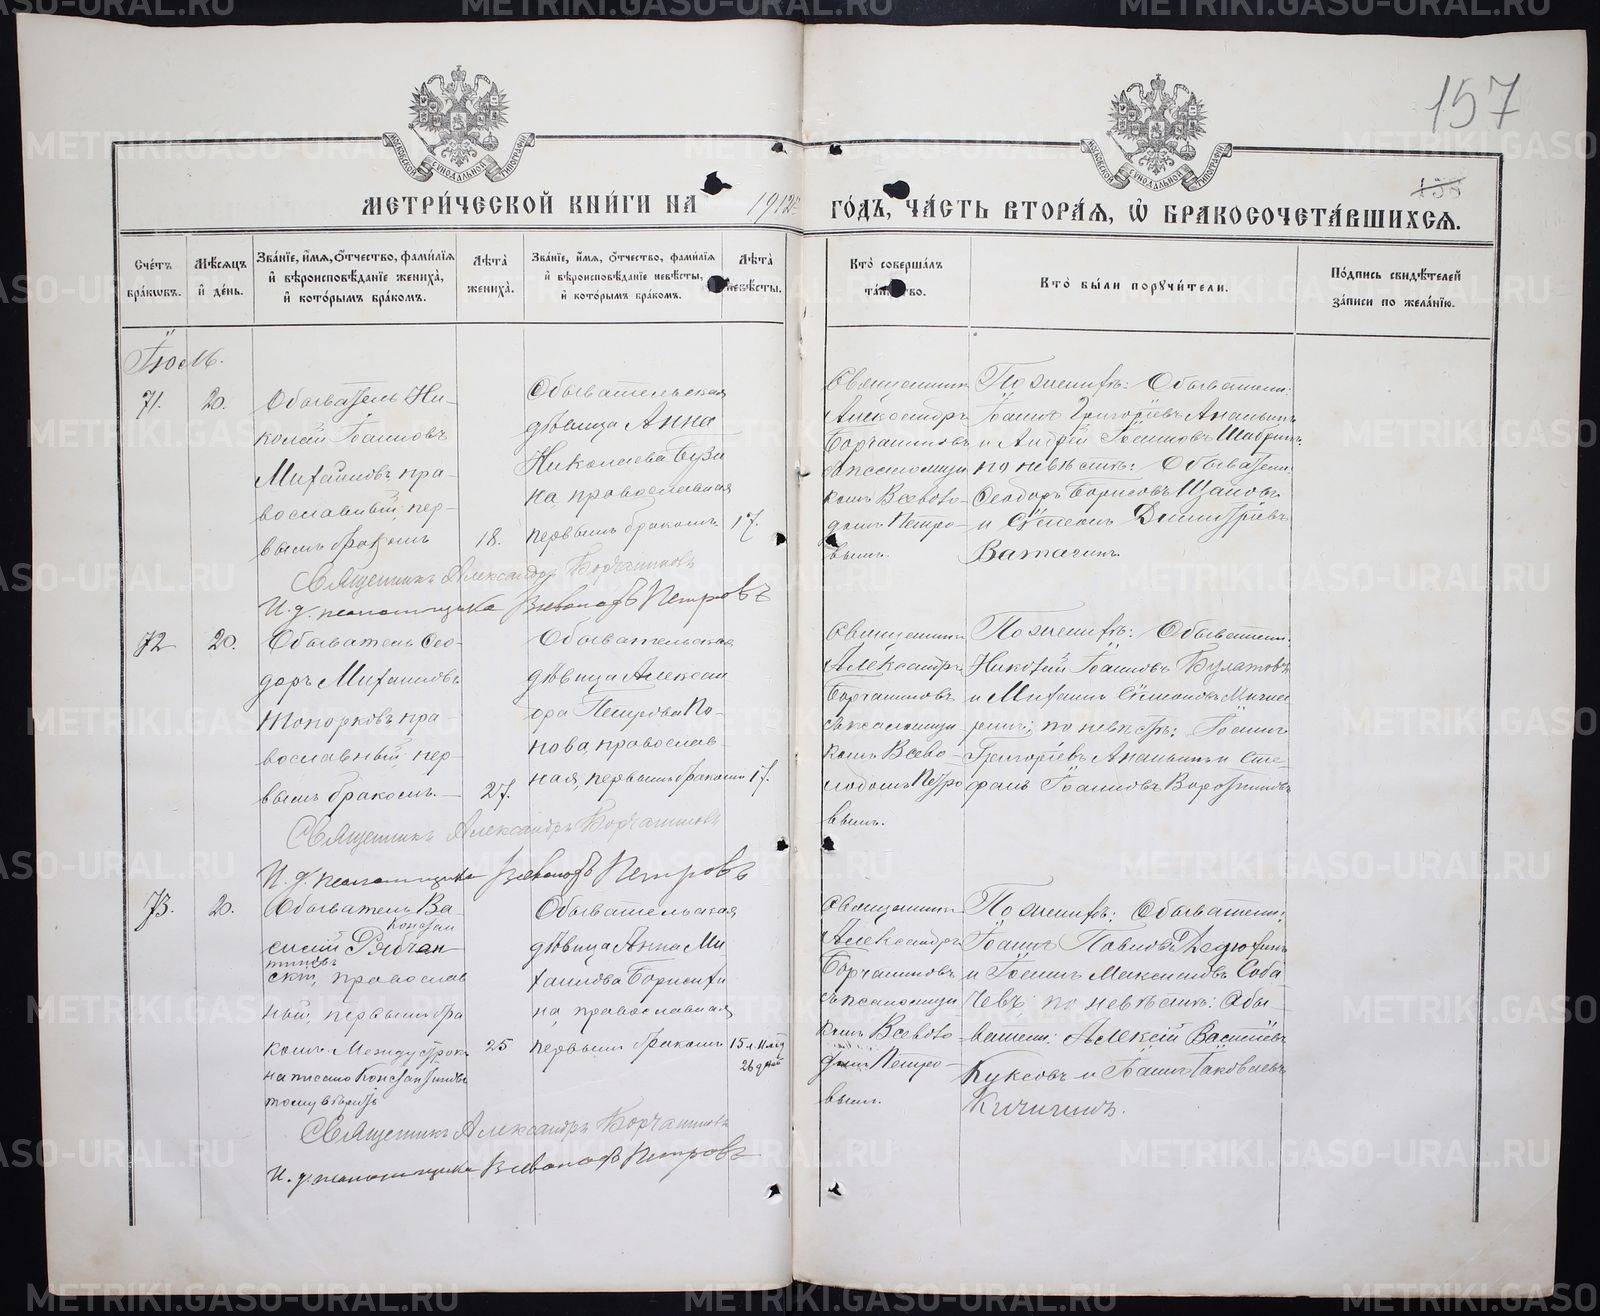 METRIKI.GASO-URAL.RU
157
158
МОСКОВСКОЙ СѴНОДАЛЬНОЙ ТИПОГРАФІИ
МОСКОВСКОЙ СѴНОДАЛЬНОЙ ТИПОГРАФІИ
МЕТРИ́ЧЕСКОЙ КНИ́ГИ НА 1912 ГО́ДЪ, ЧА́СТЬ ВТОРА́Я, Ѡ БРАКОСОЧЕТА́ВШИХСЯ.
Сче́тъ бра́кѡвъ.
Мѣ́сяцъ и҆ де́нь.
Зва́нїе, и҆́мя, ѻ҆́тчество, фами́лїя и҆ вѣроисповѣ́данїе жениха̀, и҆ кото́рымъ бра́комъ.
Лѣ́та жениха̀.
Зва́нїе, и҆́мя, ѻ҆́тчество, фами́лїя и҆ вѣроисповѣ́данїе невѣ́сты, и҆ кото́рымъ бра́комъ.
Лѣ́та невѣ́сты.
Кто̀ соверша́лъ та́инство.
Кто̀ бы́ли порꙋчи́тели.
По́дпись свидѣ́телей за́писи по жела́нїю.
71.
20.
Обыватель Ни-
колай Іоанновъ
Михайловъ, пра-
вославный, пер-
вымъ бракомъ
18.
Обывательская
дѣвица Анна
Николаева
на, православная
первымъ бракомъ.
17.
Священникъ
Александръ
Борчаниновъ
съ псаломщи
комъ Всеволо-
домъ Петро-
вымъ.
По женихѣ: Обыватели:
Іоаннъ Григорьевъ Ананьинъ
и Андрей Іоанновъ
по невѣстѣ: Обыватели
Ѳеодоръ Борисовъ
и Стефанъ Димитріевъ
Ватагинъ.
Священникъ Александръ Борчаниновъ
И. д. псаломщика Всеволодъ Петровъ
72
20.
Обыватель Ѳео-
доръ Михаиловъ
Топорковъ, пра-
вославный, пер-
вымъ бракомъ.
27.
Обывательская
дѣвица Алексан
дра Петрова По-
пова, православ-
ная, первымъ бракомъ
17.
Священникъ
Александръ
Борчаниновъ
съ псаломщи
комъ Всево-
лодомъ Петро
вымъ.
По женихѣ: Обыватели:
Николай Іоанновъ Булатовъ
и Михаилъ
по невѣстѣ: Іоаннъ
Григорьевъ Ананьинъ и Сте-
фанъ Іоанновъ
Священникъ Александръ Борчаниновъ
И. д. псаломщика Всеволодъ Петровъ
73.
20.
Обыватель Ва-
Констан
силій Рябчан
тиновъ
скій, православ
ный, первымъ бра
комъ. Между строкъ
написано Константиновъ
тому вѣрить
25
Обывательская
дѣвица Анна Ми
хаилова Борисихи
на, православная
первымъ бракомъ
15 л. 11 мѣс
26 дней
Священникъ
Александръ
Борчаниновъ
съ псаломщи
комъ Всеволо
домъ Петро-
вымъ.
По женихѣ: Обыватели:
Іоаннъ Павловъ Дедюхинъ
и Іоаннъ Максимовъ Соба
чевъ; по невѣстѣ: Обы
ватели: Алексій Васильевъ
Куксовъ и Іоаннъ Іаковлевъ
Кичигинъ.
Священникъ Александръ Борчаниновъ
И. д. псаломщика Всеволодъ Петровъ